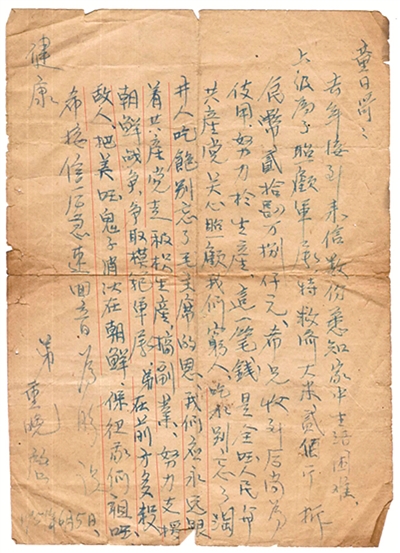 黄日荷：
去年接到来信数份悉知家中生活困难，
上级为了照顾军家特救济大米贰佰斤，折
为币贰拾万捌仟元，希兄收到后尚为
使用，努力于生产，这一笔钱是全国人民和
共产党关心照顾我们穷人，吃水别忘了掏
井人，吃饱别忘了毛主席的恩，我们应永远跟
着共产党走，积极生产，搞副业，努力支援
朝鲜战争，争取模范军属，弟在前方多杀
敌人，把美国鬼子消灭在朝鲜，保卫我们祖国。
希接信后急速回音，为盼 祝
健康
弟
6月5日